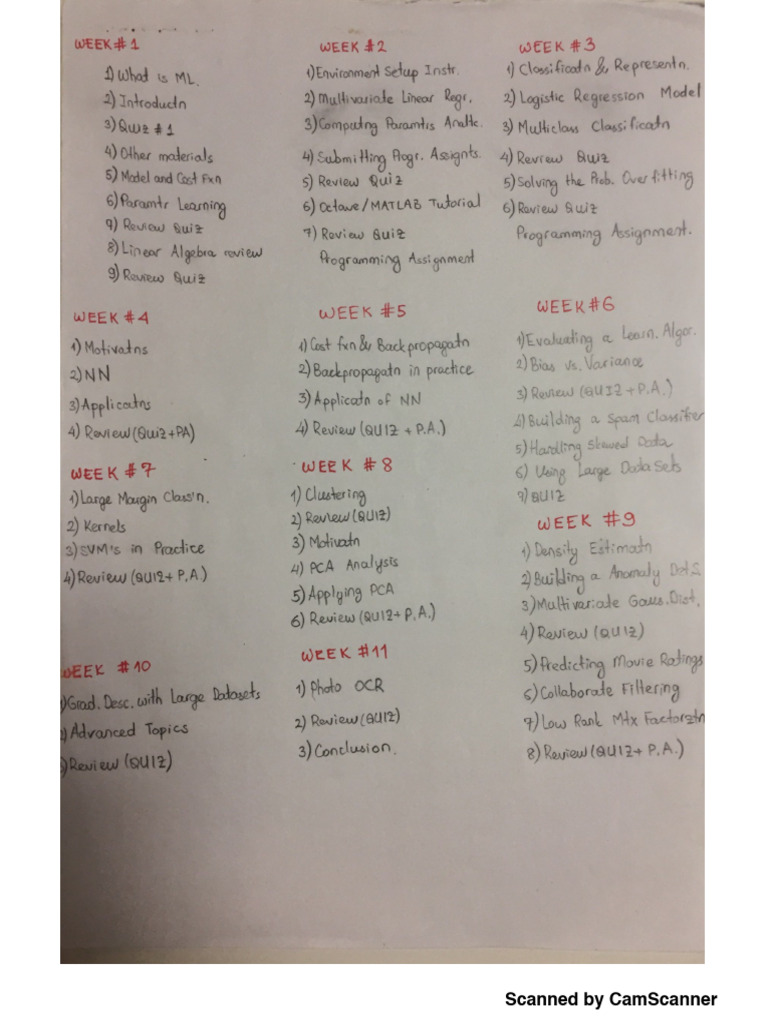 WEEK #1
1) What is ML.
2) Introductn
3) Quiz #1
4) Other materials
5) Model and Cost Fxn
6) Paramtr Learning
7) Review Quiz
8) Linear Algebra review
9) Review Quiz
WEEK #2
1) Environment Setup Instr.
2) Multivariate Linear Regr.
3) Computng Paramtrs Analtc.
4) Submitting Progr. Assignts.
5) Review Quiz
6) Octave/MATLAB Tutorial
7) Review Quiz
Programming Assignment
WEEK #3
1) Classificatn & Representn.
2) Logistic Regression Model
3) Multiclass Classificatn
4) Review Quiz
5) Solving the Prob. Overfitting
6) Review Quiz
Programming Assignment.
WEEK #4
1) Motivatns
2) NN
3) Applicatns
4) Review (Quiz+PA)
WEEK #5
1) Cost fxn & Backpropagatn
2) Backpropagatn in practice
3) Applicatn of NN
4) Review (QUIZ + P.A.)
WEEK #6
1) Evaluating a Learn. Algor.
2) Bias vs. Variance
3) Review (QUIZ + P.A.)
4) Building a Spam Classifer
5) Handling Skewed Data
6) Using Large Data Sets
7) QUIZ
WEEK #7
1) Large Margin Class'n.
2) Kernels
3) SVM's in Practice
4) Review (QUIZ+ P.A.)
WEEK #8
1) Clustering
2) Review (QUIZ)
3) Motivatn
4) PCA Analysis
5) Applying PCA
6) Review (QUIZ+ P.A.)
WEEK #9
1) Density Estimatn
2) Building a Anomaly Det S
3) Multivariate Gauss. Dist.
4) Review (QUIZ)
5) Predicting Movie Ratings
6) Collaborate Filtering
7) Low Rank Mtx Factorztn
8) Review (QUIZ+ P.A.)
WEEK #10
1) Grad. Desc. with Large Datasets
) Advanced Topics
) Review (QUIZ)
WEEK #11
1) Photo OCR
2) Review (QUIZ)
3) Conclusion.
Scanned by CamScanner